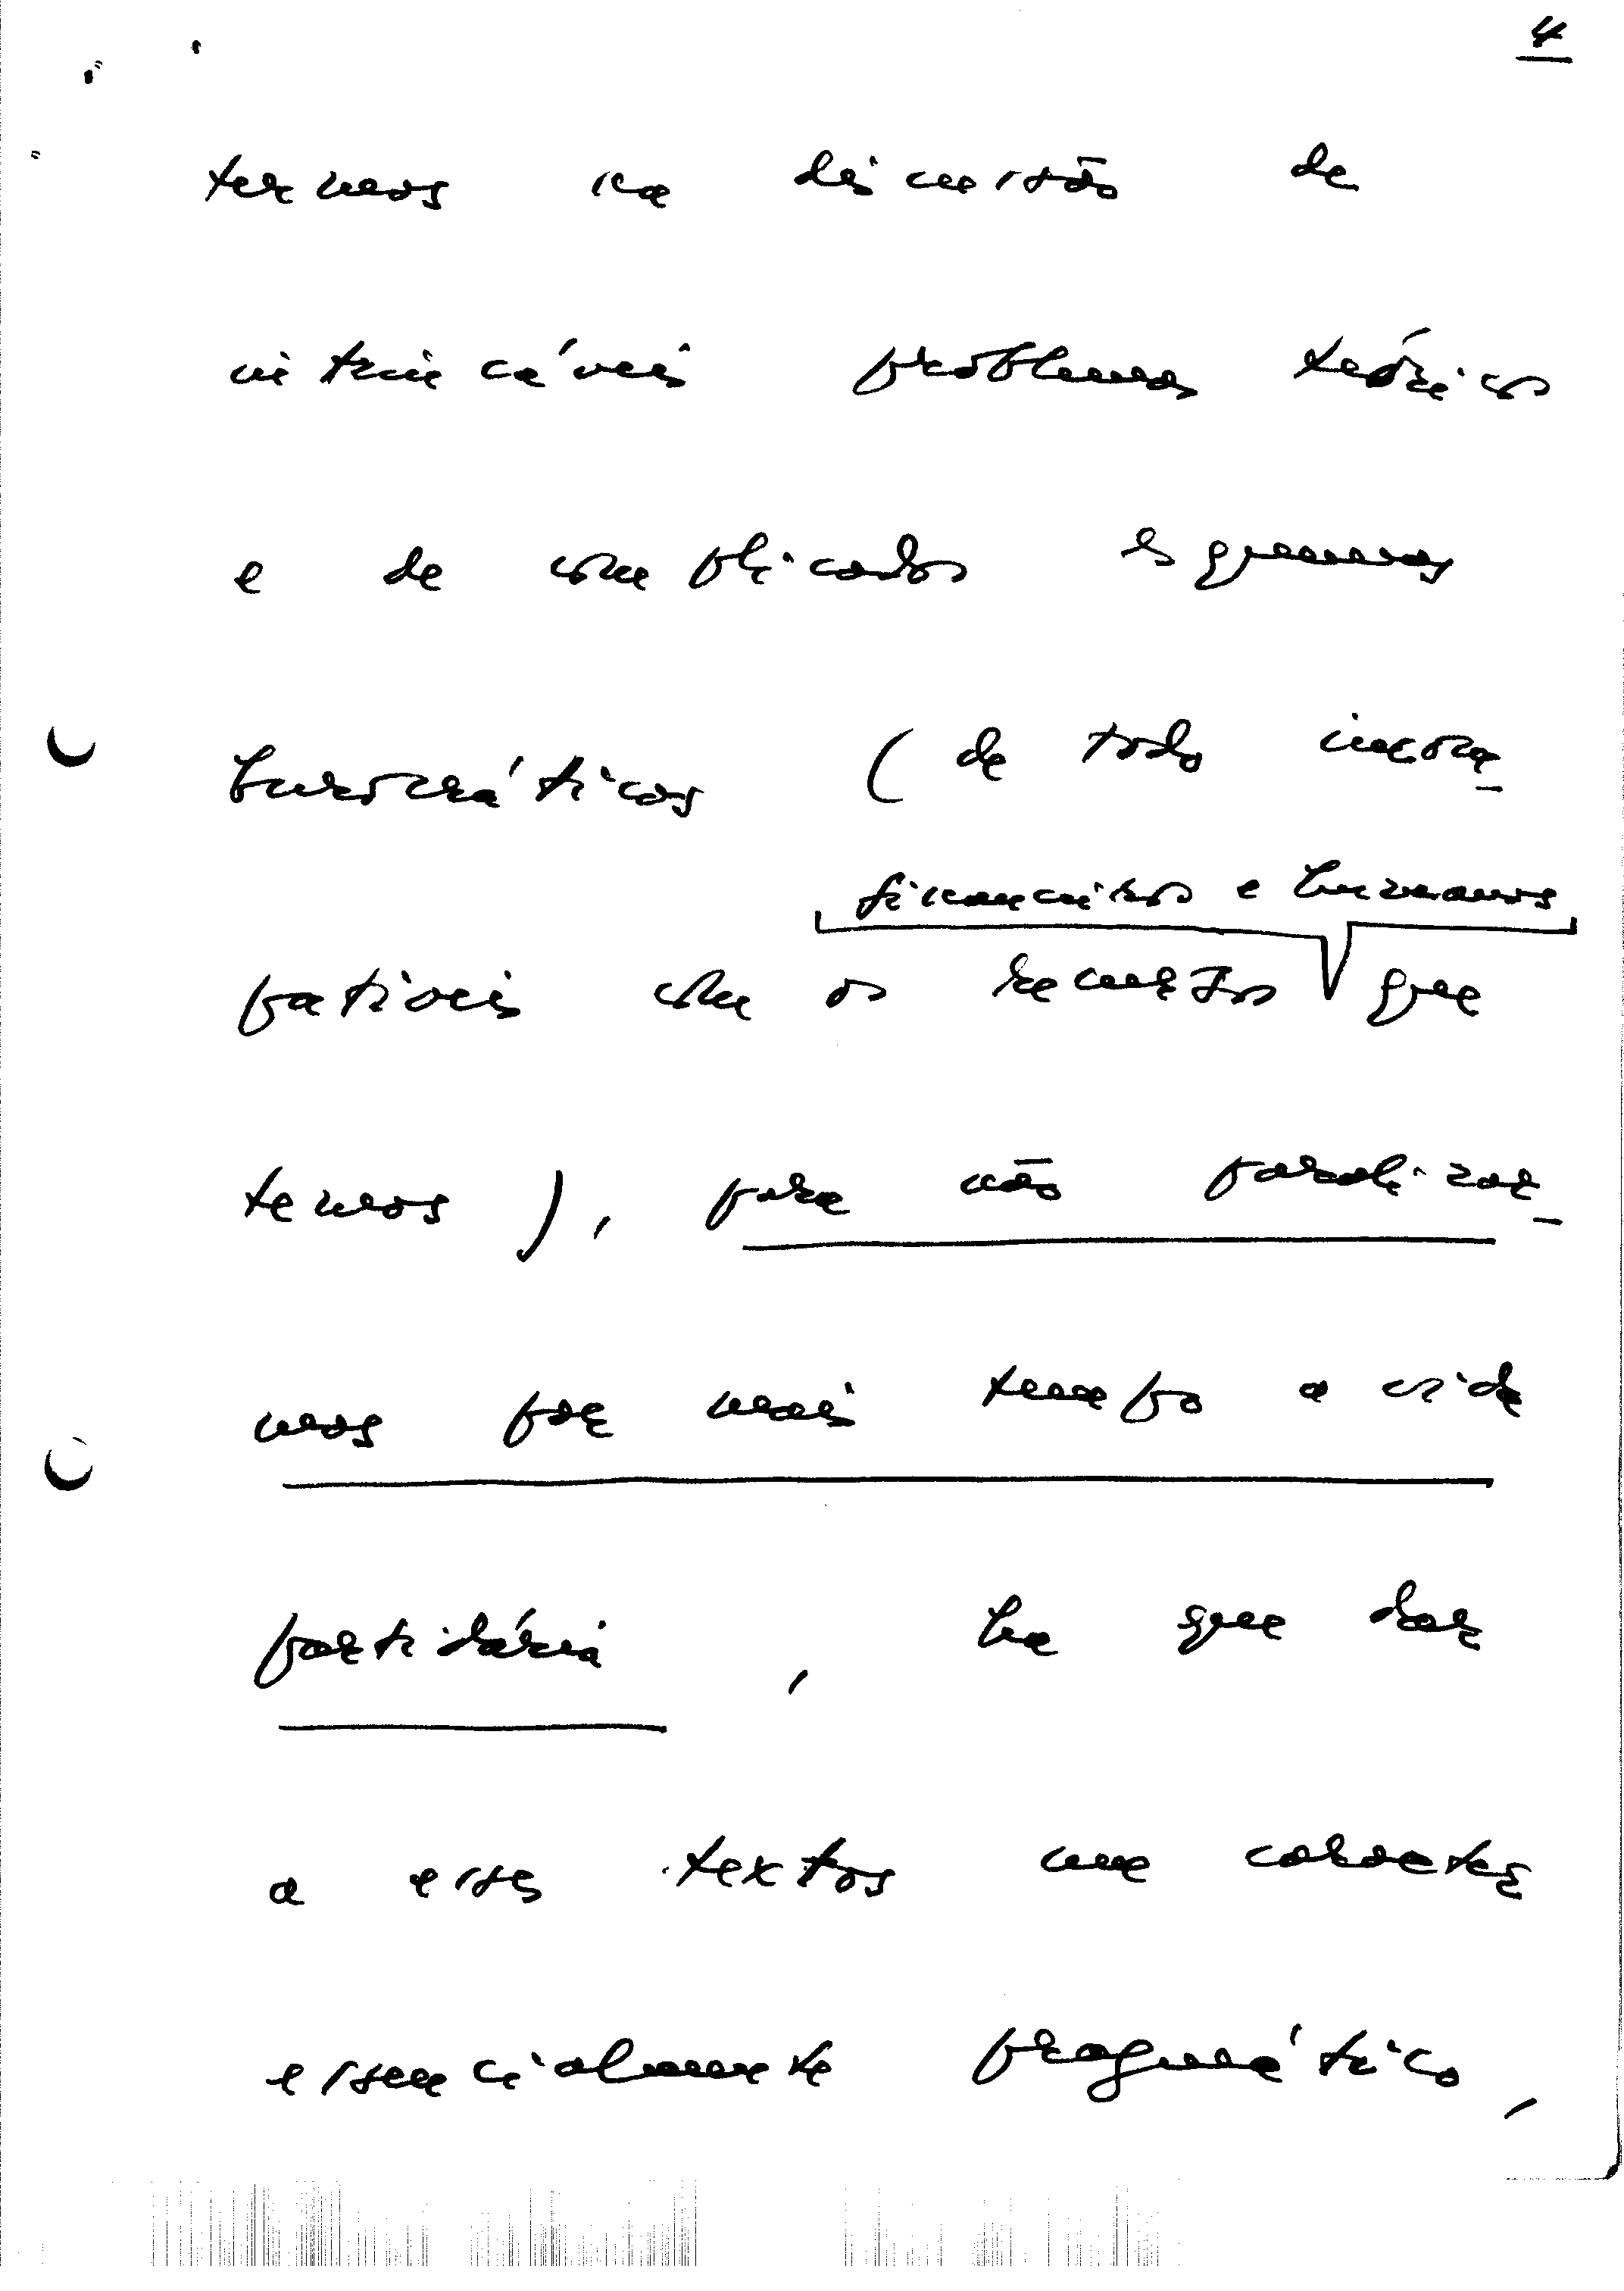 4
termos na discussão de
intrincáveis problemas teóricos
e de complicados esquemas
burocráticos (de todo incom-
financeiros e humanos
patíveis com os recursos que
temos), para não paralizar-
mos por mais tempo a vida
partidária, ha que dar
a esses textos um caracter
essencialmente pragmático,